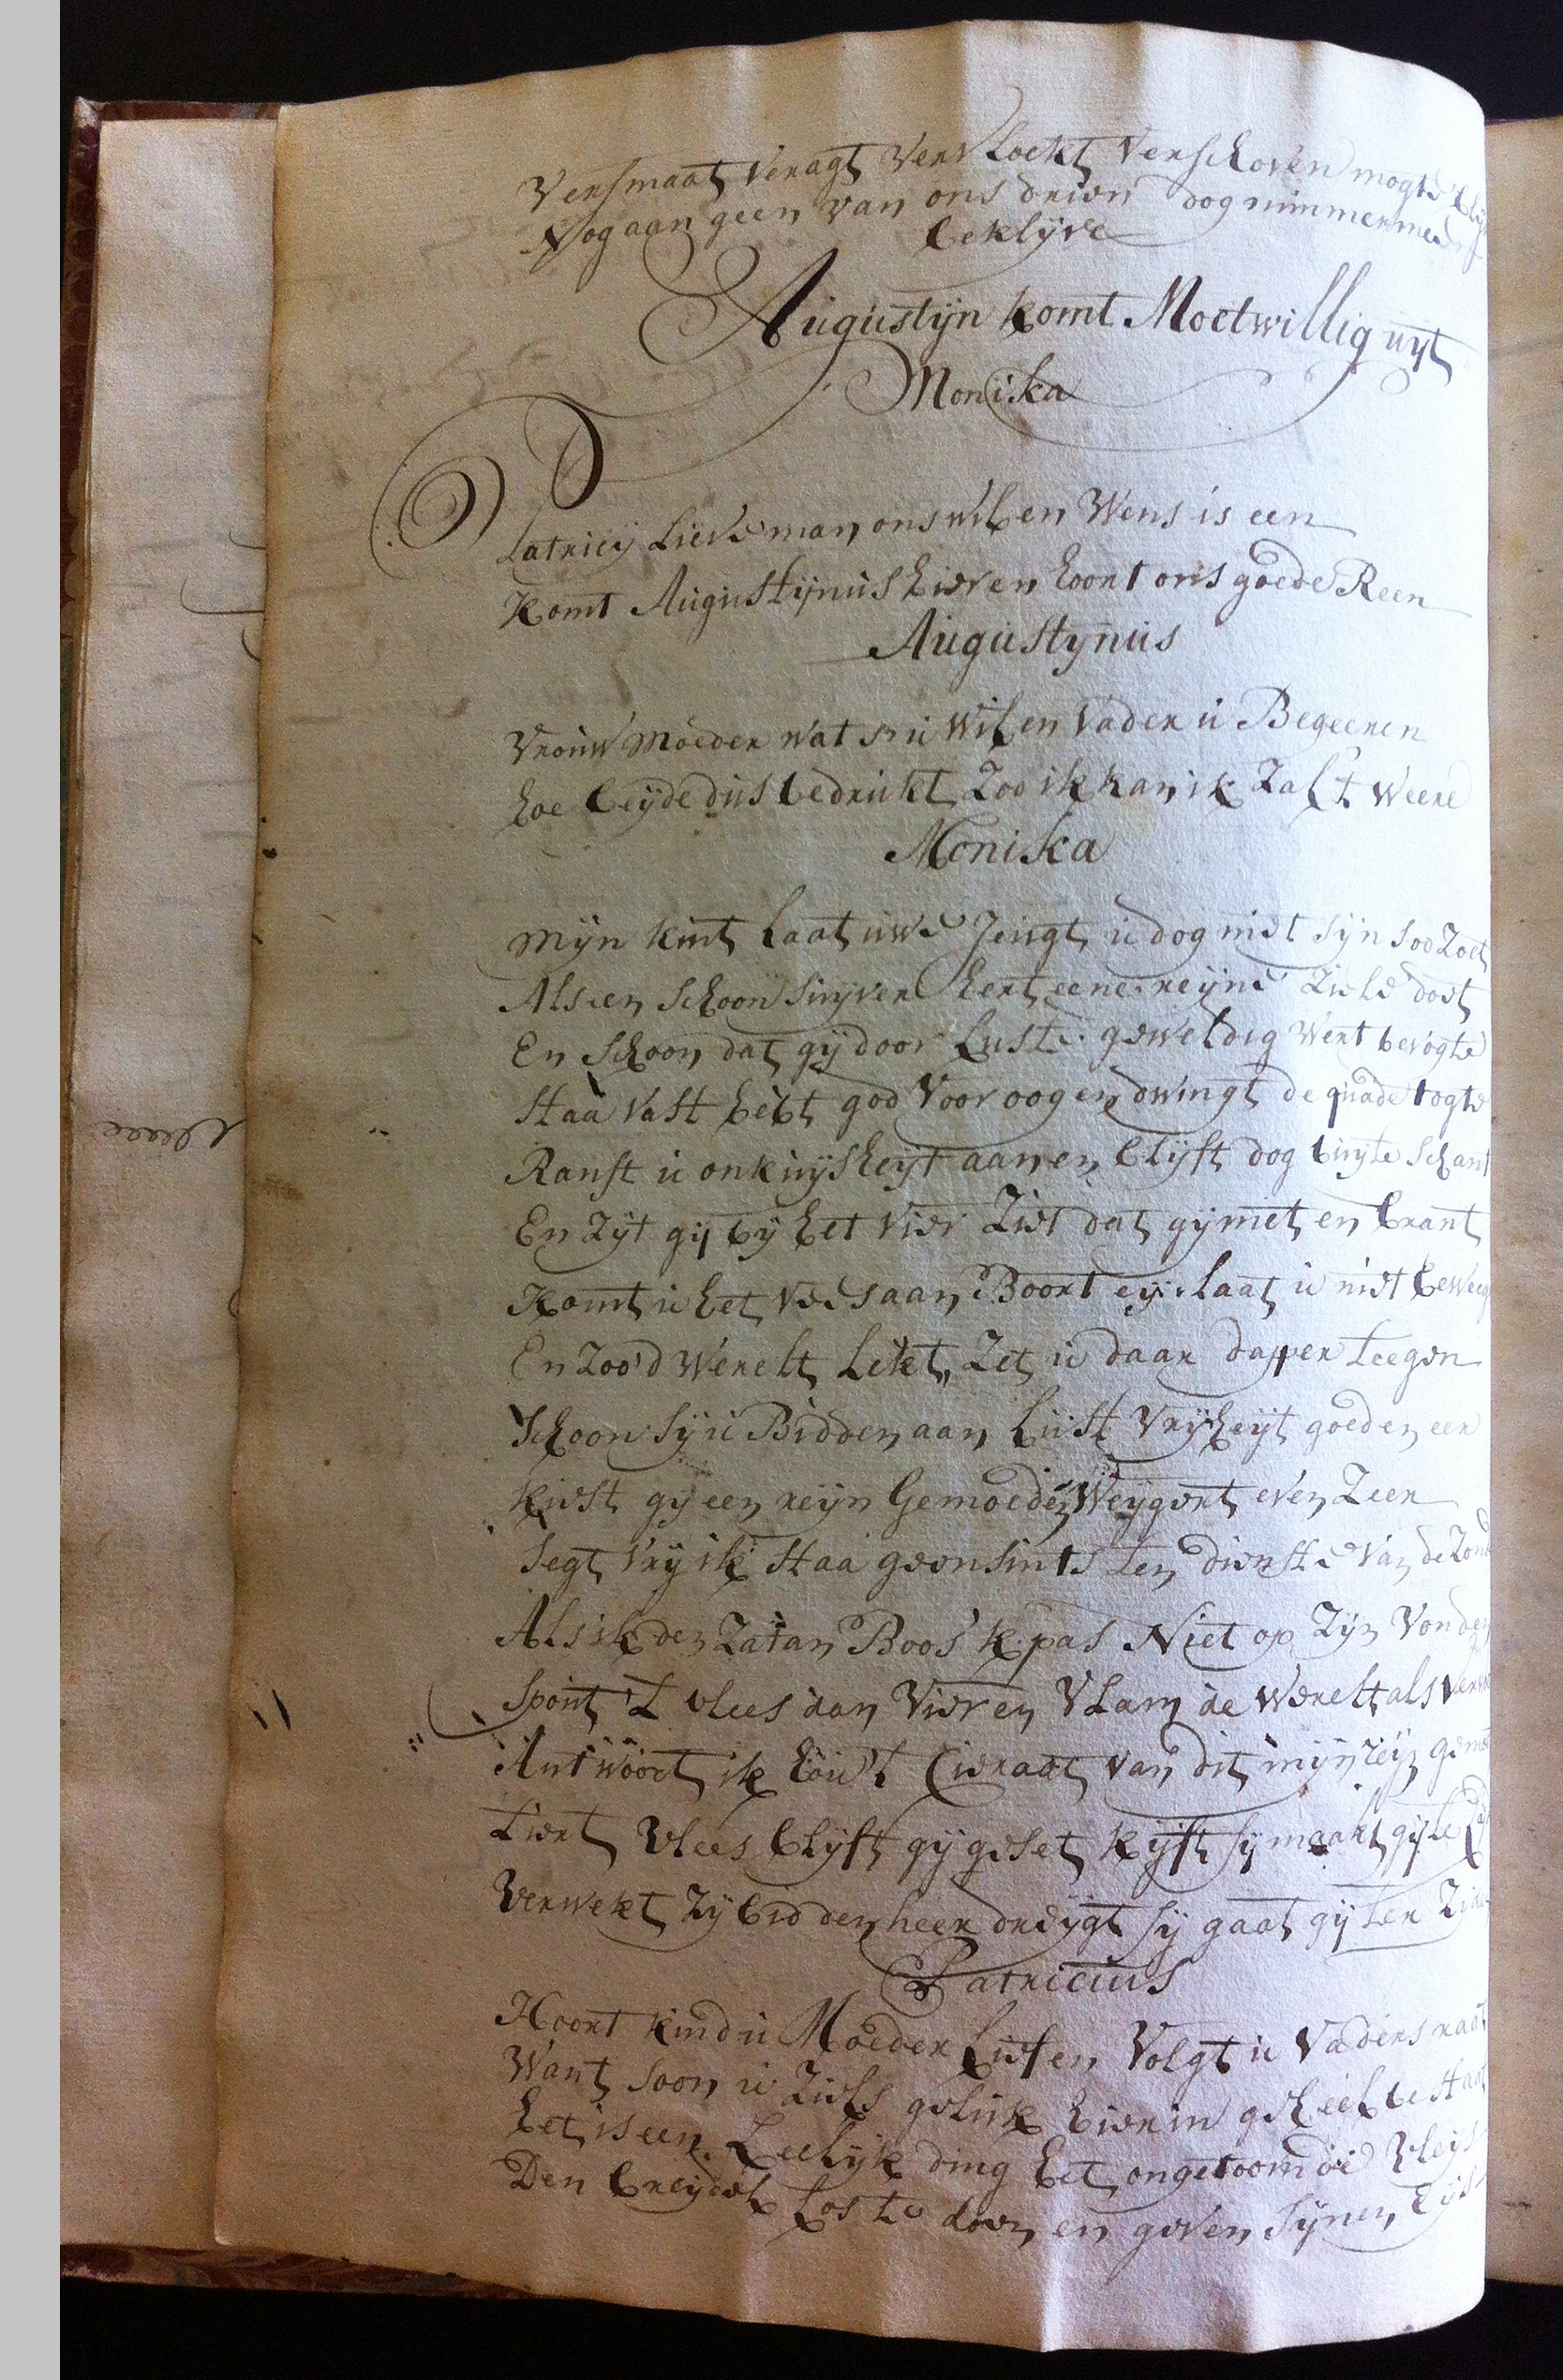 Versmaat veragt vervloekt verschoven mogte
Nog aan geen van ons drien dog nimmermeer
beklijve
Augustijn komt Moetwillig uijt
Monika
Patricij Lieve man ons wil en Wens is een
Komt Augustijnus hier en hoort ons goede Reen
Augustynus
Vrouw Moeder wat is u wil en vader u Begeeren
hoe beyde dus bedrukt Zoo ik kan ik Zal't Weere
Monika
Mijn kint Laat uwe Jeugt u dog niet sijn soo Zoet
Als een schoon suyver hert eene reijne Ziele doet
En schoon dat gij door Luste geweldig Wert bevogte
staa vast hebt god voor oogen dwingt de quade togte
Ranst u onkuysheyt aan en blijft dog buyte schant
En Zijt gij bij het vier Ziet dat gij niet en brant
Komt u het vlees aan Boort eij Laat u niet
En Zoo'd Werelt Lekt, Zet u daar dapper teegen
schoon sij u Bidden aan Lust vrijheyt goed en eer
kiest gij een reijn Gemoed en Weijgert even Zeer
segt vrij ik staa geensints ten dienste van de
Als ik den Zatan Boos k pas Niet op Zijn vonden
spout 't vlees dan vier en vlam de werelt als
Antwoort ik hou't Cieraat van dit mijn reijn
Tiert vlees blijft gij geset kijft sij maakt gij
Verwekt Zij bid den heer dreijgt sij gaat gij ter Zijde
Patricius
Hoort kind u Moeder Lief en Volgt u Vaders raat
Want soon u Ziels geluk hier in geheel bestaat
het is een Leelijk ding het ongetoomde vleijs
Den breijdel Los te doen en geven sijnen Eijs